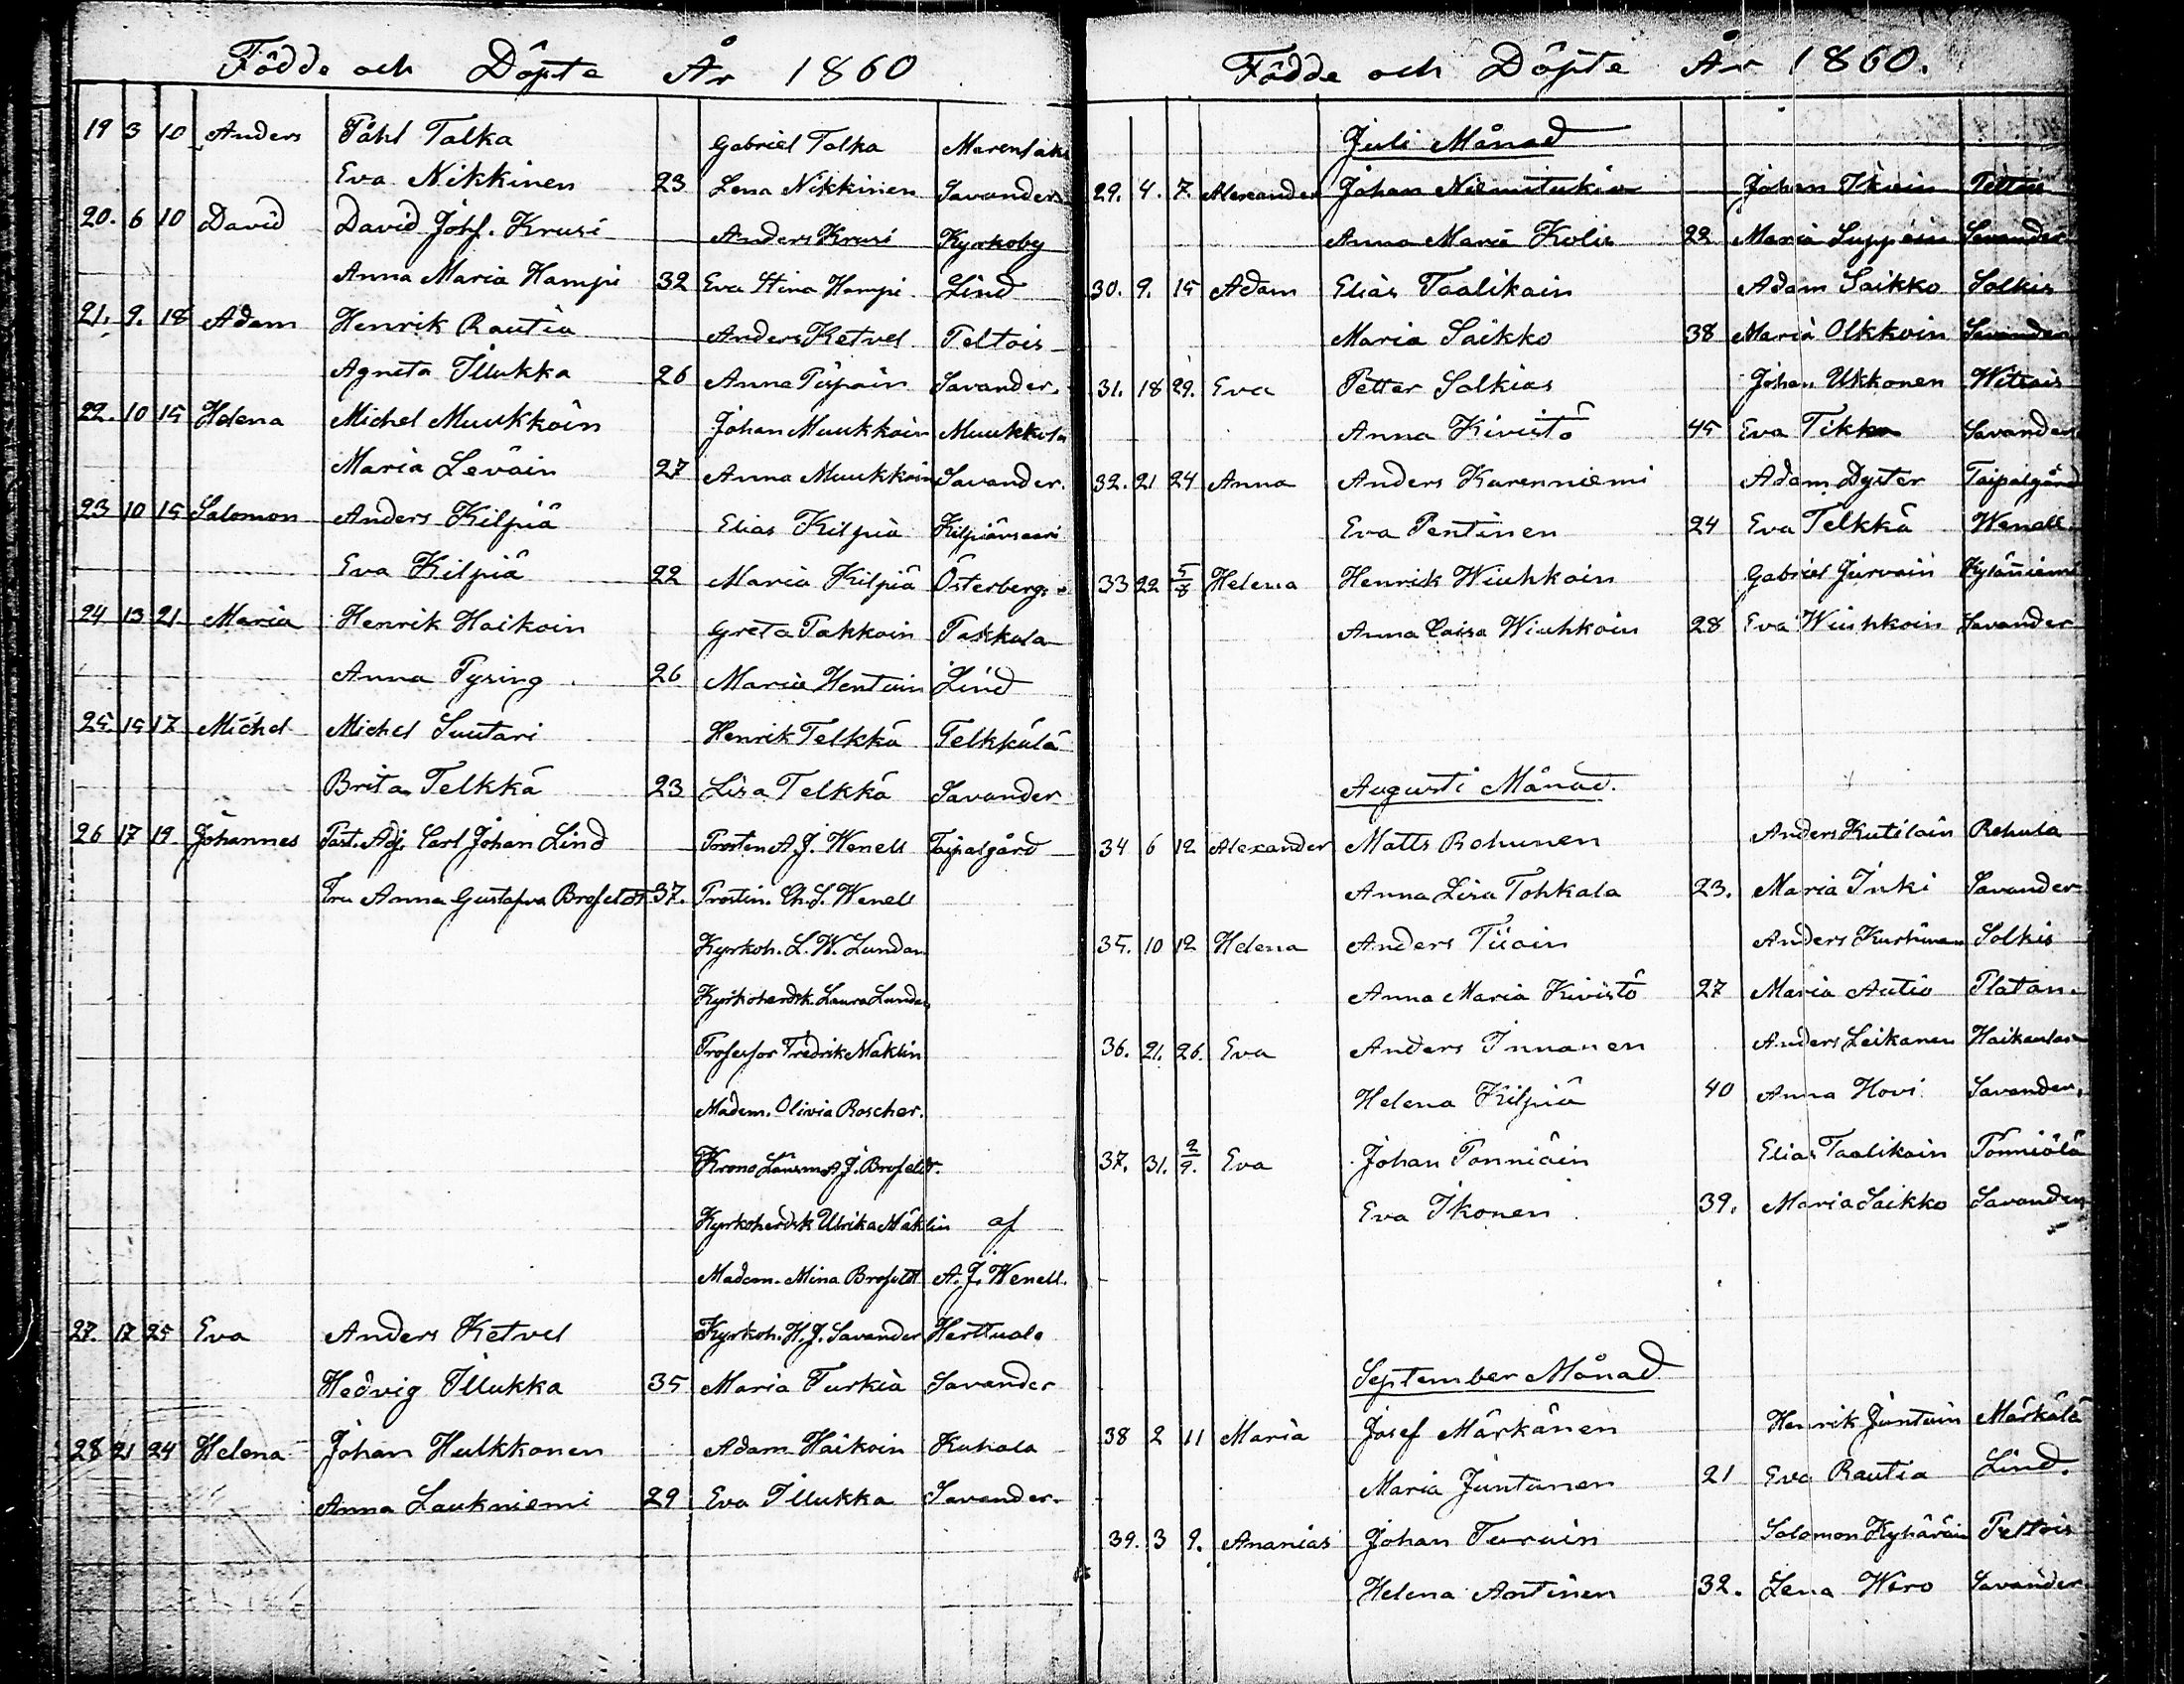 Födde och Döpte År 1860
19 3 10 Anders Påhl Talka Gabriel Talka
Eva Nikkinen 23 Lena Nikkinen Savander
20. 6 10 David David Johs. Krusi Anders Krusi Kyrkoby
Anna Maria Hampi 32 Eva Stina Hampi Lind
21. 9. 18 Adam Henrik Rautia Anders Ketvel Peltois
Agneta Illukka 26 Anna Savander.
22. 10 15 Helena Michel Muukkoin Johan Muukkoin Muukkola
Maria Leväin 27 Anna Muukkoin Savander.
23 10 15 Salomon Anders Kilpiä Elias Kilpiä Kilpiänsaari
Eva Kilpiä 22 Maria Kilpiä Österberg
24 13 21 Maria Henrik Haikoin Greta Pakkain Pakkala
Anna Pysing 26 Maria Hentuin Lind
25. 15 17 Michel Michel Suutari Henrik Telkkä Telkkälä
Brita Telkkä 23 Lisa Telkkä Savander
26 17 19. Johannes Past. Adj. Carl Johan Lind Prosten A. J. Wenell Taipalgård
Fru Anna Gustafva Brofeldt 37. Prostin. Ch. S. Wenell
Kyrkoh. L. W. Lundan
Kyrkoherdsk. Laura Lundan
Professor Fredrik Mäklin
Madem. Olivia Roscher.
Krono Länsm A J. Brofeldt.
Kyrkoherdsk Ulrika Mäklin af
Madem. Mina Brofeldt A. J. Wenell.
27. 17 25 Eva Anders Ketvel Kyrkoh. H. J. Savander Herttuala
Hedvig Illukka 35 Maria Turkia Savander
28 21 24 Helena Johan Hulkkonen Adam Haikoin Kuhala
Anna Laukniemi 29 Eva Illukka Savander.
Födde och Döpte År 1860.
Juli Månad
29. 4. 7. Alexander Johan Johan Peltois
Anna Maria Kolis 22 Maria Savander
30. 9. 15 Adam Elias Taalikain Adam Saikko Solkis
Maria Saikko 38 Maria Olkkoin Savander
31. 18 29. Eva Petter Solkias Johan Ukkonen
Anna Kivistö 45 Eva Savander
32. 21 24 Anna Anders Karenniemi Adam Dyster Taipalgård
Eva Pentinen 24 Eva Telkkä Wenell.
33 22 5/8 Helena Henrik Wiuhkoin Gabriel Jurvain Kyläniemi
Anna Caisa Wiuhkoin 28 Eva Wiuhkoin Savander
Augusti Månad.
34 6 12 Alexander Matts Rohunen Anders Kutilain Rehula
Anna Lisa Tohkala 23. Maria Inki Savander
35. 10 12 Helena Anders Tiiain Anders Solkis
Anna Maria Kivistö 27 Maria Autio Platan.
36. 21. 26. Eva Anders Innanen Anders Leikanen
Helena Kilpiä 40 Anna Hovi Savander.
37. 31. 2/9. Eva Johan Pönniäin Elias Taalikain Pönniälä
Eva Ikonen 39. Maria Saikko Savander
September Månad
38 2 11 Maria Josef Märkänen Henrik Juntuin Märkälä
Maria Juntunen 21 Eva Rautia Lind.
39. 3 9. Ananias Johan Turuin Salomon Kyhäräin Peltois
Helena Antinen 32. Lena Wiro Savander